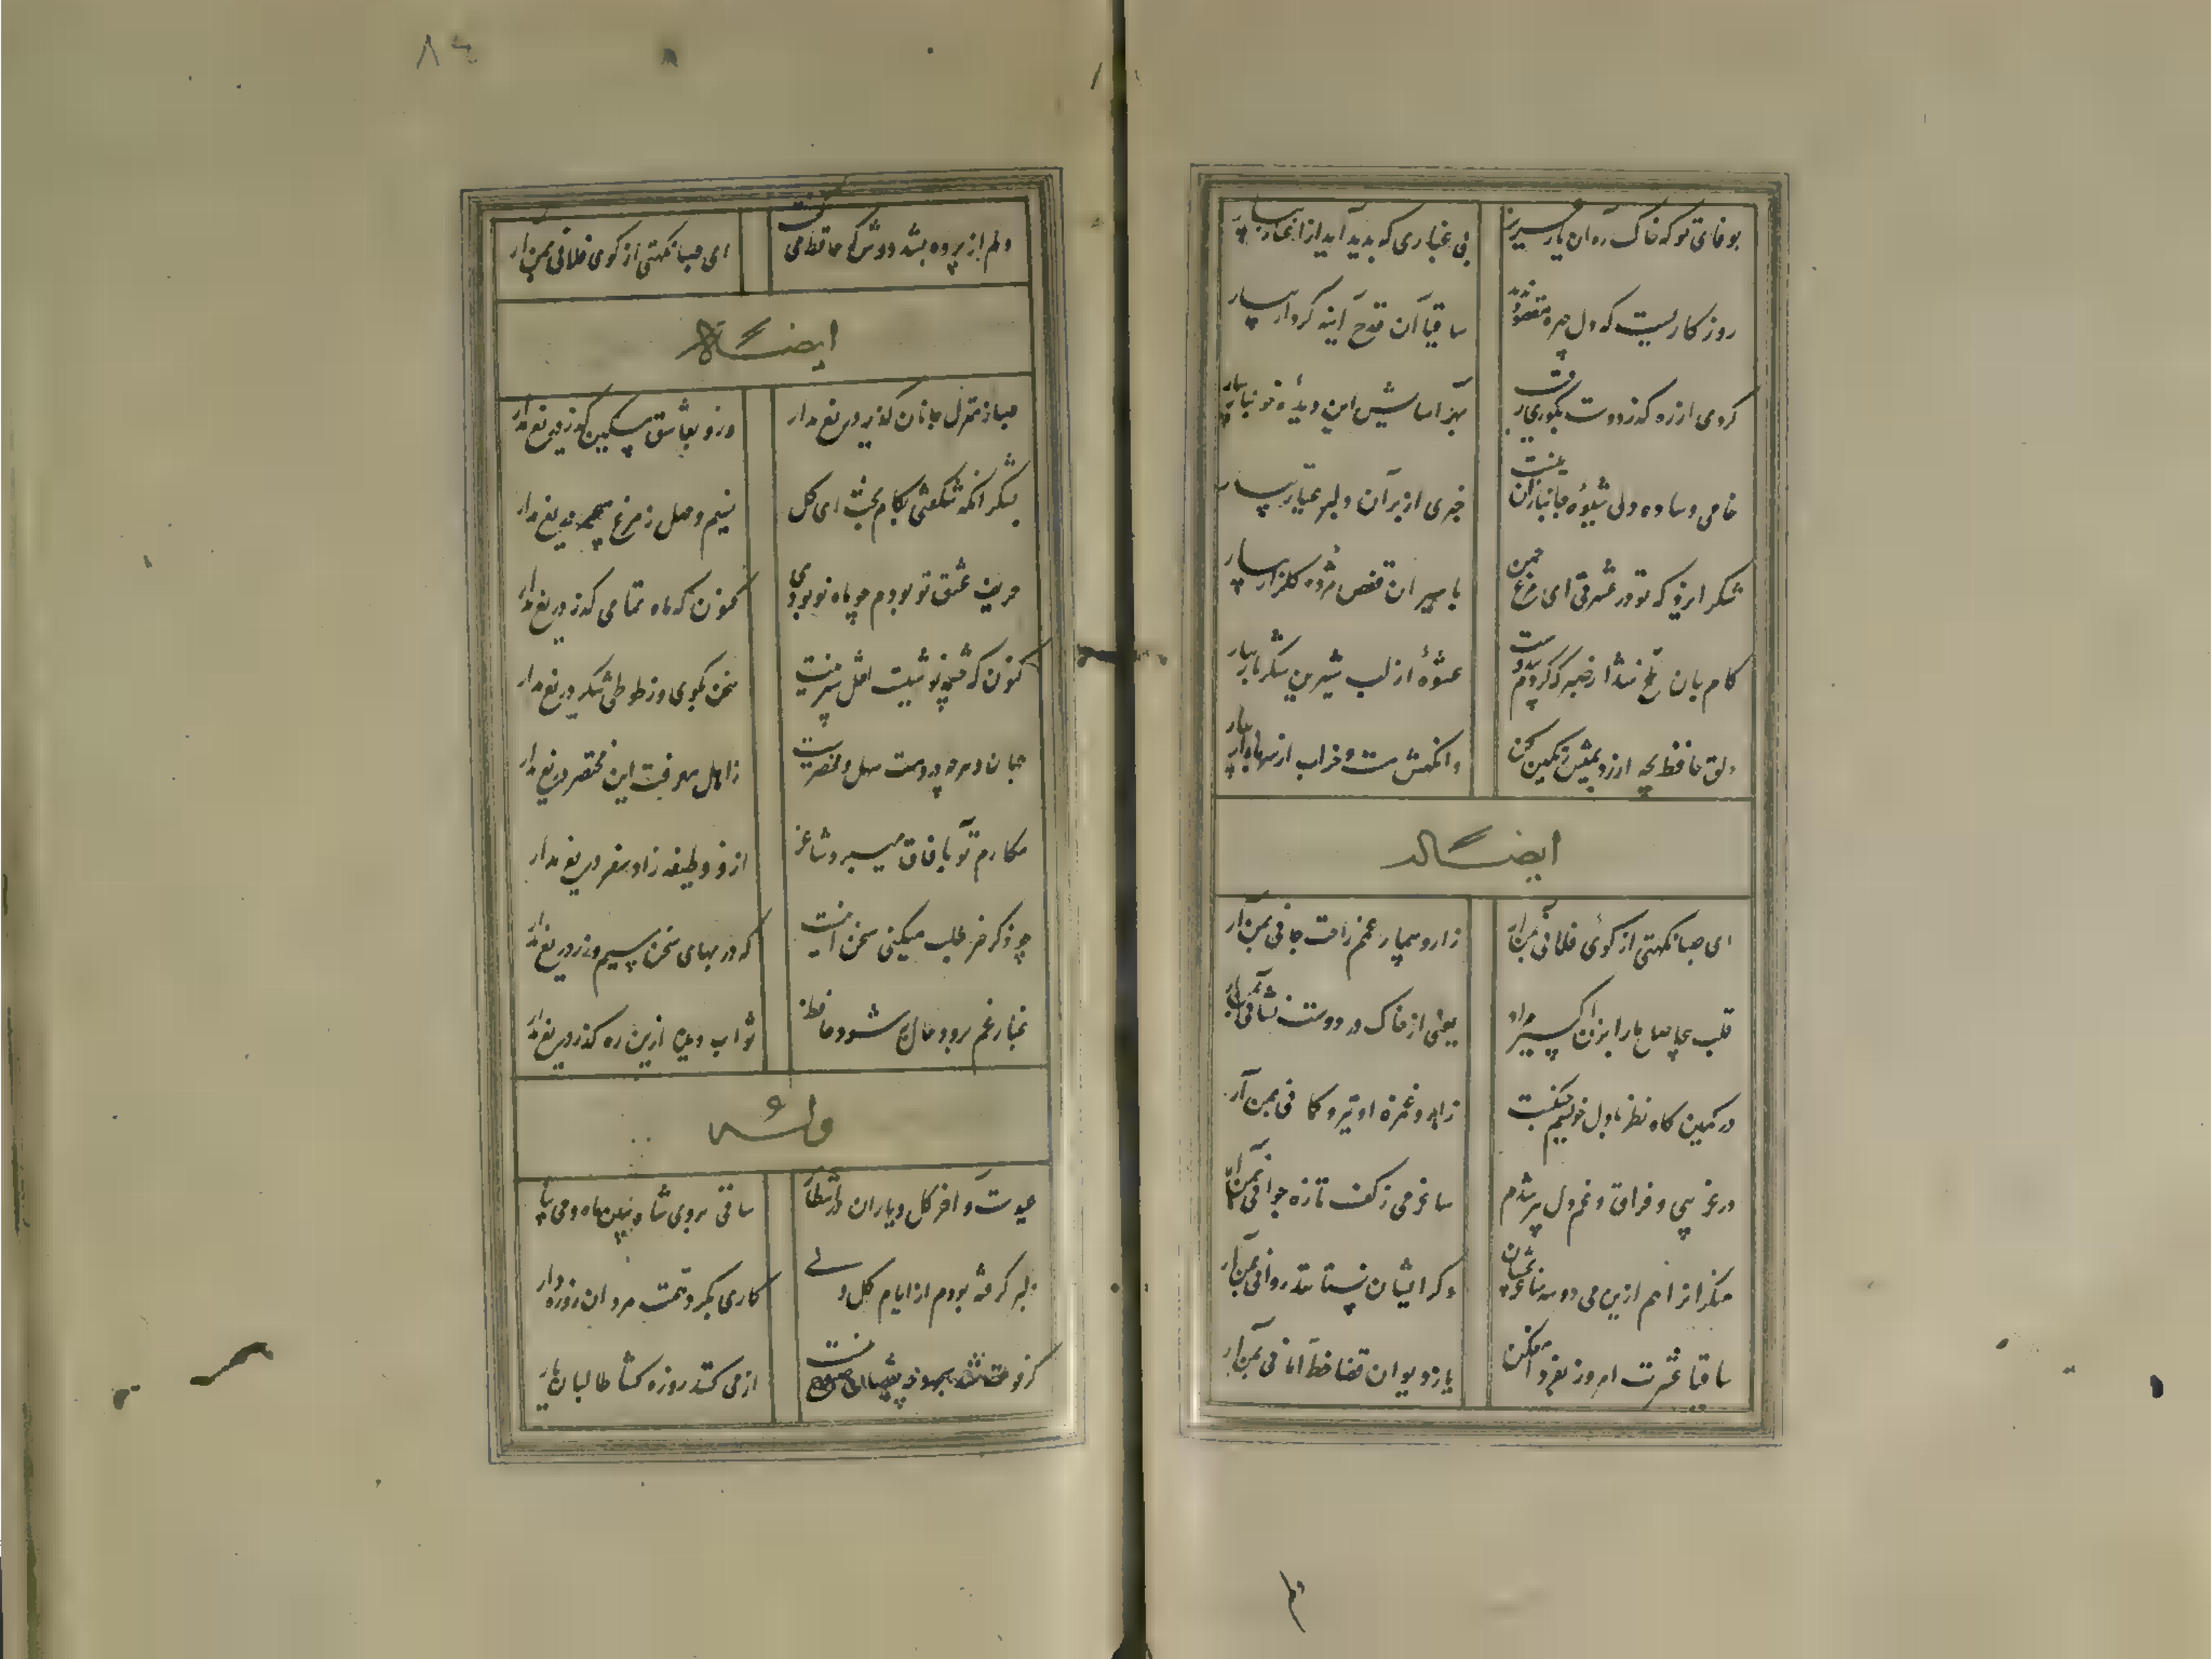 بوفای تو که خاک ره آن یار عزیز
بی غباری که بدید آید از اغیار بیار
روزکاریست که دل چهره مقصود ندید
ساقیا آن قدح آینه کردار بیار
کردی از ره کذر دوست بکوری رقیب
بهر آسایش این دیدهٔ خونبار بیار
خامی و ساده دلی شیوهٔ جانبازان نیست
خبری از بر آن دلبر عیار بیار
شکر ایزد که تو در عشرتی ای مرغ چمن
باسیران قفس مژده کلزار بیار
کام جان تلخ شد از صبر که کردم بیدوست
عشوهٔ از لب شیرین شکربار بیار
دلق حافظ بچه ارزد بمیش رنکین کن
وانکهش مست و خراب از سر بازار بیار
ایضاً له
ای صبا نکهتی از کوی فلانی بمن آر
زار و بیمار غمم راحت جانی بمن آر
قلب بیحاصل ما را بزن اکسیر مراد
یعنی از خاک در دوست نشانی بمن آر
در کمین کاه نظر با دل خویشم جنکست
زابرو و غمزه او تیر و کمانی بمن آر
در غریبی و فراق و غم دل پیر شدم
ساغر می ز کف تازه جوانی بمن آر
منکرانرا هم ازین می دو سه ساغر بچشان
وکر ایشان نستانند روانی بمن آر
ساقیا عشرت امروز بفردا مفکن
یا ز دیوان قضا خط امانی بمن آر
۸۴
دلم از پرده بشد دوش که حافظ می کفت
ای صبا نکهتی از کوی فلانی بمن آر
ایضاً له
صبا ز منزل جانان کذر دریغ مدار
وزو بعاشق مسکین خبر دریغ مدار
بشکر آنکه شکفتی بکام بخت ای کل
نسیم وصل ز مرغ سحر دریغ مدار
حریف عشق تو بودم چو ماه نو بودی
کنون که ماه تمامی کذر دریغ مدار
کنون که چشمه نوشیست لعل شیرینت
سخن بکوی وز طوطی شکر دریغ مدار
جهان و هر چه دروست سهل و مختصرست
ز اهل معرفت این مختصر دریغ مدار
مکارم تو بآفاق میبرد شاعر
ازو وظیفه زاد سفر دریغ مدار
چو ذکر خیر طلب میکنی سخن اینست
که در بهای سخن سیم و زر دریغ مدار
غبار غم برود حال به شود حافظ
تو آب دیده ازین ره کذر دریغ مدار
وله
عیدست و آخر کل و یاران در انتظار
ساقی بروی شاه ببین ماه و می بیار
دل بر کرفته بودم از ایام کل ولی
کاری بکرد همت مردان روزه دار
از می کنند روزه کشا طالبان یار